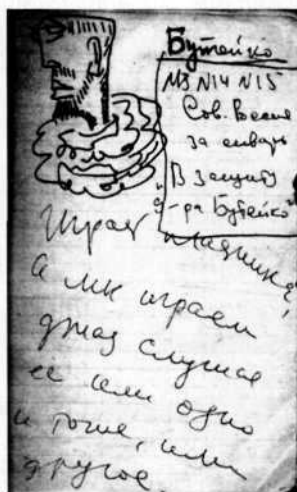 Бутейко
N13 N14 N15
Сов. Весть
за январь
В защиту
д-ра Бутейко"
Играет
А мы играем
джаз
её или одно
и тоже, или
другое